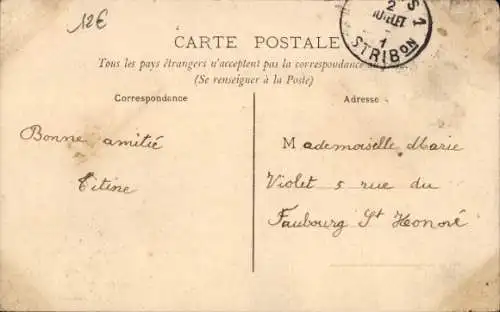 12€
S 1
2
JUILLET
1
STRIBON
CARTE POSTALE
Tous les pays étrangers n'acceptent pas la correspondance au
(Se renseigner à la Poste)
Correspondance
Adresse
Bonne amitié
Titine
Mademoiselle Marie
Violet 5 rue du
Faubourg St Honoré